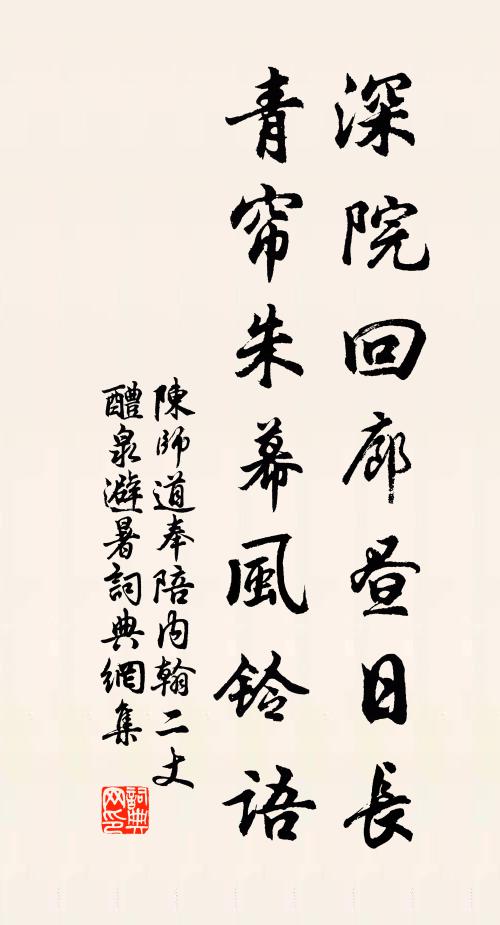 深院回廊昼日長
青帘朱幕風鈴語
陳師道奉陪内翰二丈
醴泉避暑詞典網集
詞典网印